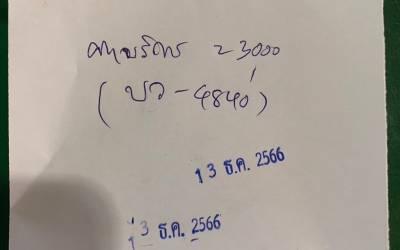 ค่าบริการ 23000
(บว - 4840)
13 ธ.ค. 2566
13 ธ.ค. 2566